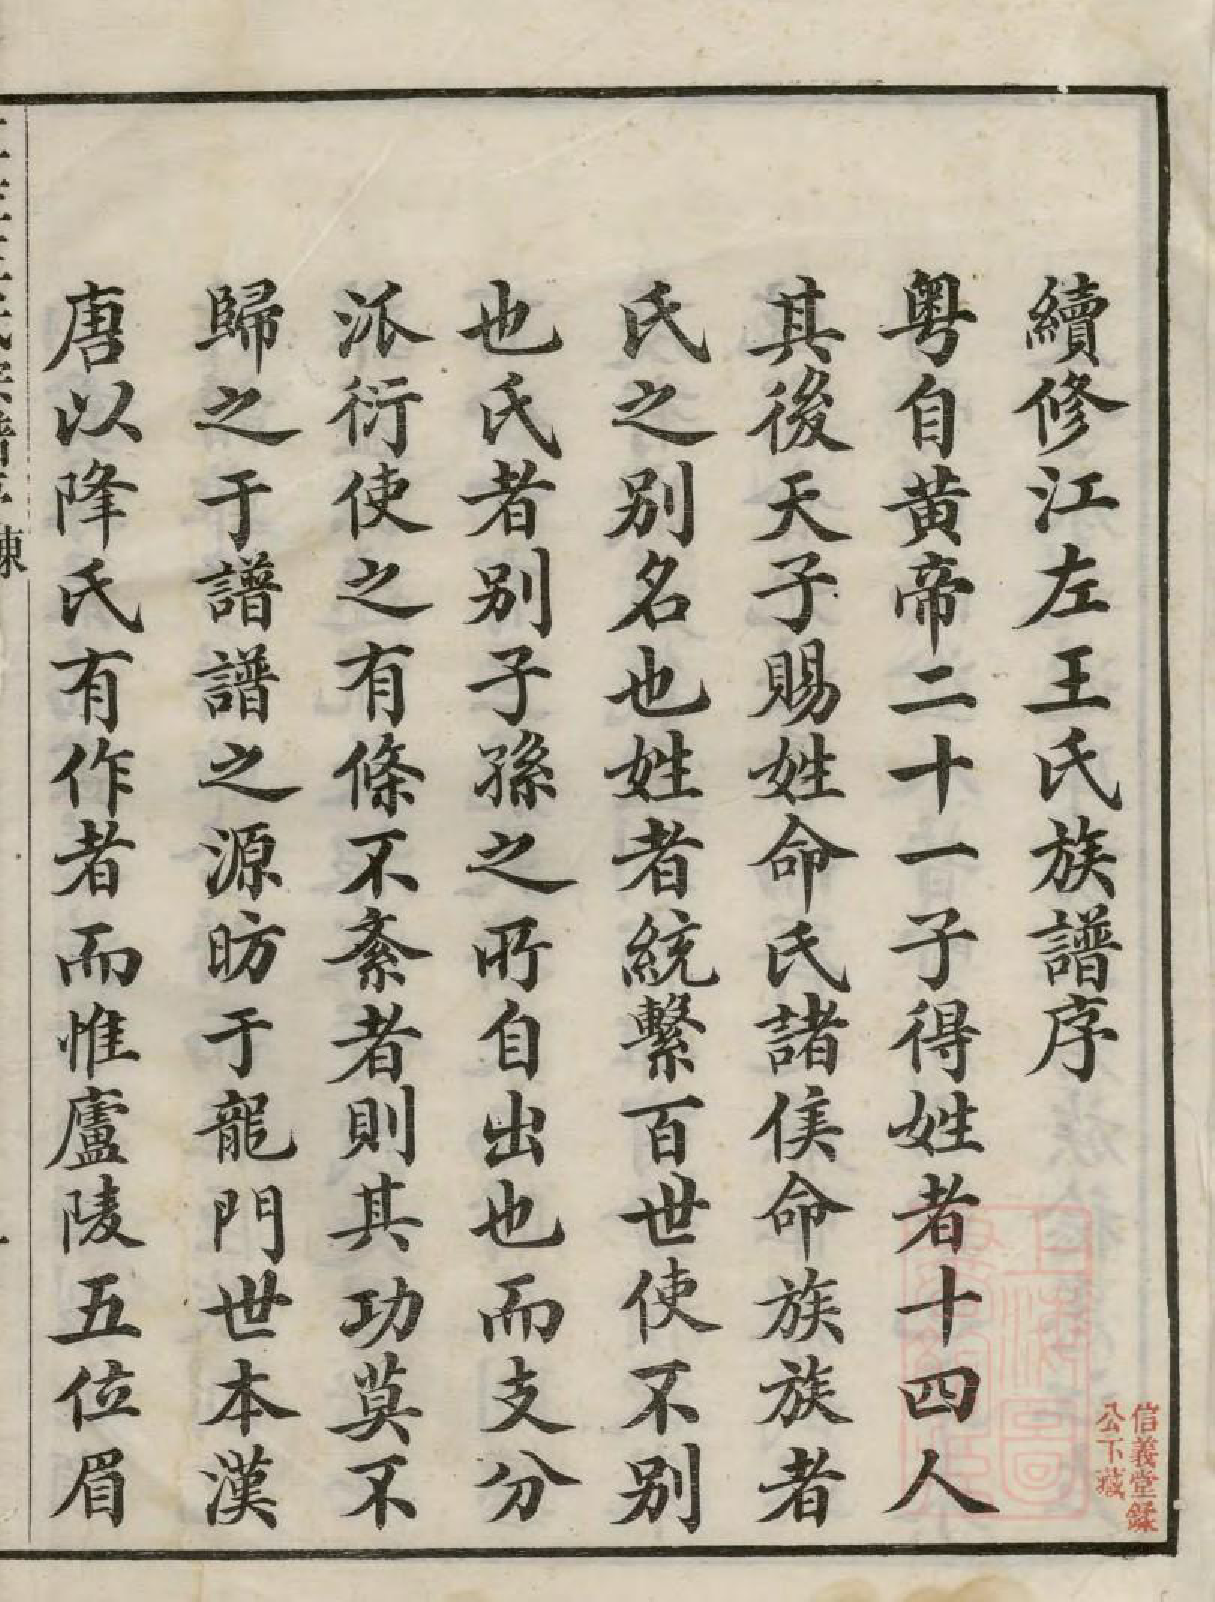 續修江左王氏族譜序
粵自黃帝二十一子得姓者十四人
其後天子賜姓命氏諸侯命族族者
氏之別名也姓者統繫百世使不別
也氏者別子孫之所自出也而支分
派衍使之有條不紊者則其功莫不
歸之于譜譜之源昉于龍門世本漢
唐以降氏有作者而惟廬陵五位眉
信義堂鍒
公下藏